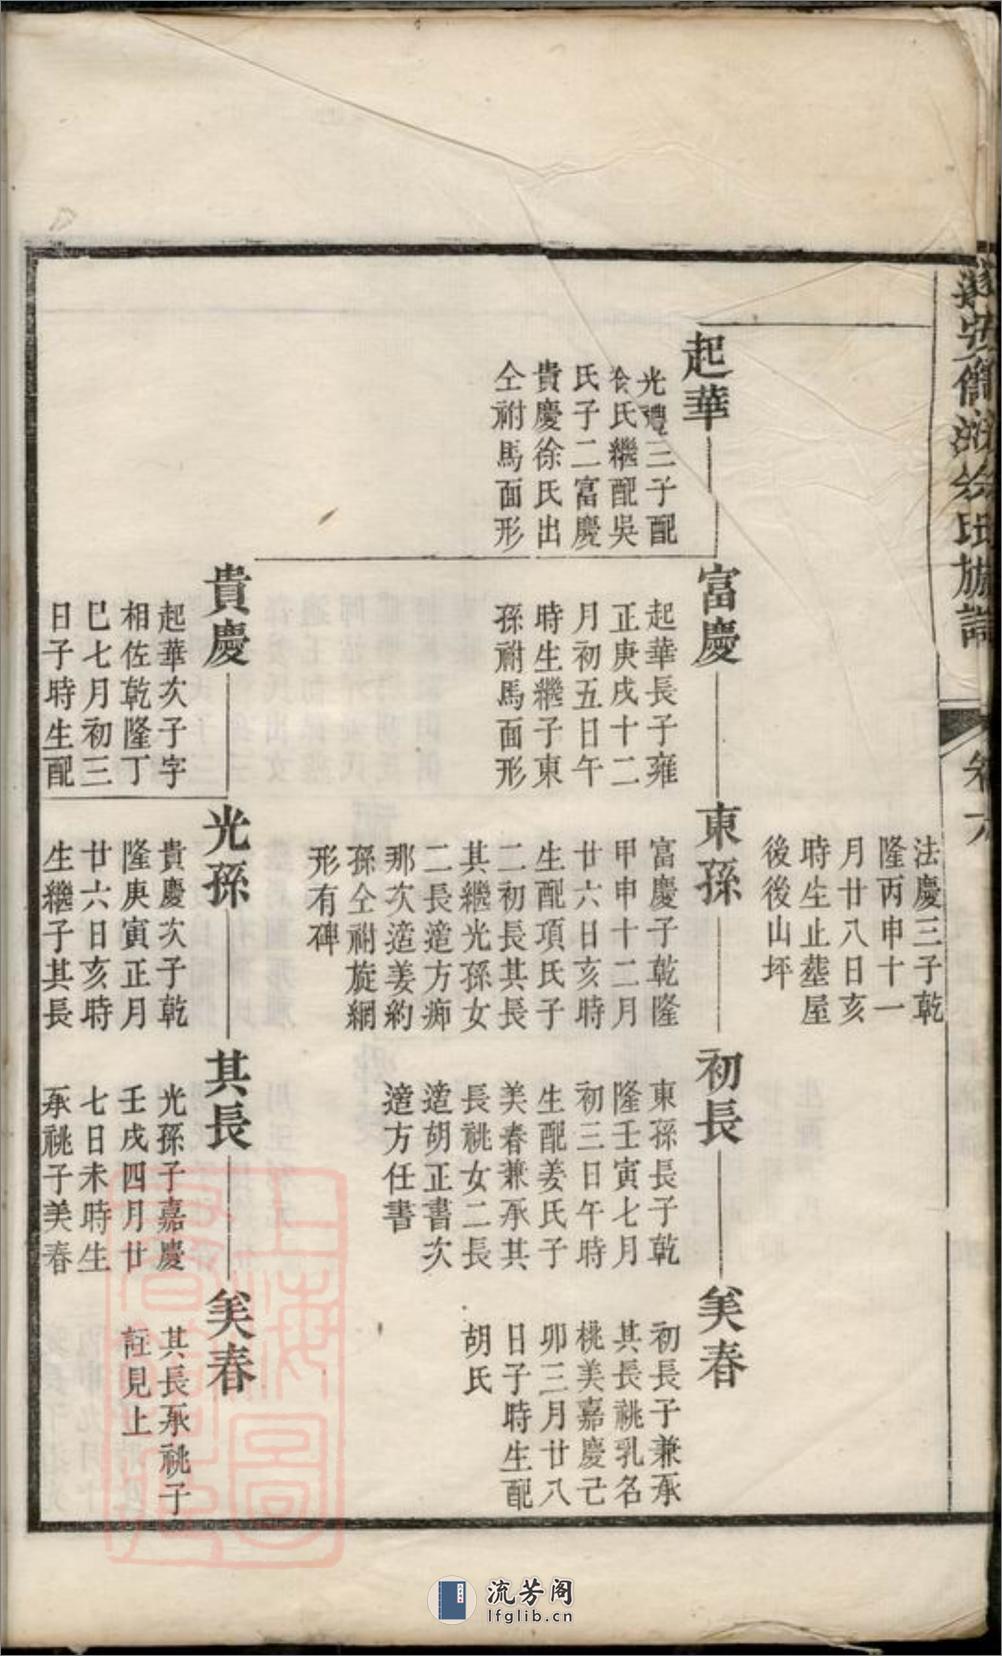 氏族譜
卷六
法慶三子乾
隆丙申十一
月廿八日亥
時生止塟屋
後後山坪
起華
光禮三子配
氏繼配吳
氏子二富慶
貴慶徐氏出
仝祔馬面形
富慶
起華長子雍
正庚戌十二
月初五日午
時生繼子東
孫祔馬面形
東孫
富慶子乾隆
甲申十二月
廿六日亥時
生配項氏子
二初長其長
其繼光孫女
二長適方㾗
那次適姜約
孫仝祔旋網
形有碑
初長
東孫長子乾
隆壬寅七月
初三日午時
生配姜氏子
美春兼承其
長祧女二長
適胡正書次
適方任書
美春
初長子兼承
其長祧乳名
桃美嘉慶己
卯三月廿八
日子時生配
胡氏
貴慶
起華次子字
相佐乾隆丁
巳七月初三
日子時生配
光孫
貴慶次子乾
隆庚寅正月
廿六日亥時
生繼子其長
其長
光孫子嘉慶
壬戌四月廿
七日未時生
承祧子美春
美春
其長承祧子
註見上
上海圖
流芳阁
lfglib.cn